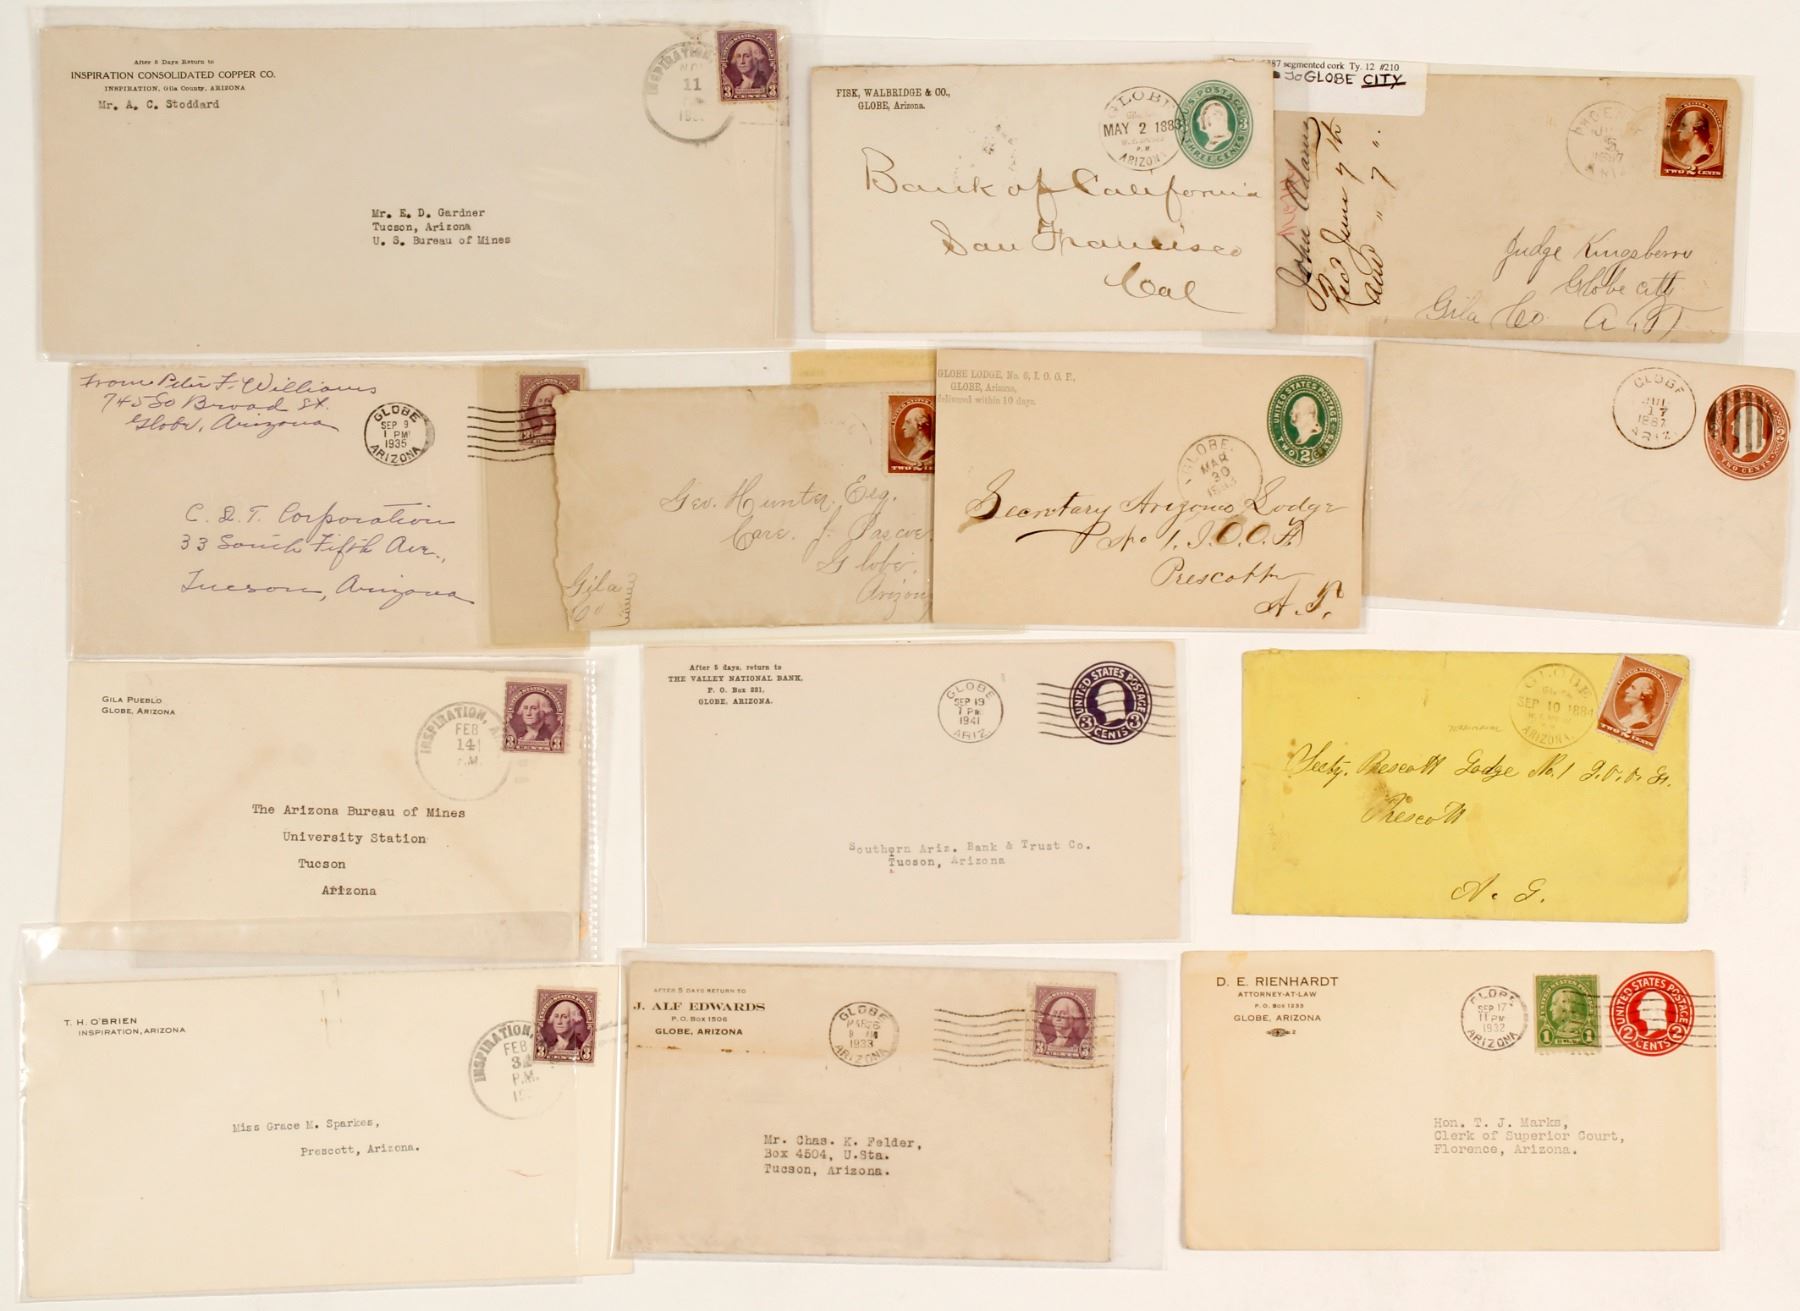 After 5 Days Return to
INSPIRATION CONSOLIDATED COPPER CO.
INSPIRATION, Gila County, ARIZONA
Mr. A. C. Stoddard
INSPIRATION,
11
UNITED STATES POSTAGE
3 CENTS 3
Mr. E. D. Gardner
Tucson, Arizona
U. S. Bureau of Mines
FISK, WALBRIDGE & CO.,
GLOBE, Arizona.
GLOBE
MAY 2 1883
P.M
ARIZONA
U.S. POSTAGE
THREE CENTS
Bank of California
San Francisco
Cal
87 segmented cork Ty. 12 #210
To GLOBE CITY
John Adams
Rec'd June 7th
Ans " 7 "
PHOENIX
1887
ARIZ
TWO 2 CENTS
Judge Kingsberry
Globe City
Gila Co A. T.
From Peter F. Williams
745 So Broad St.
Globe, Arizona
GLOBE
SEP 9
1 PM
1935
ARIZONA
C. & T. Corporation
33 South Fifth Ave.,
Tucson, Arizona
TWO 2 CENTS
Geo. Hunter Esq.
Care J. Pascoe
Globe,
Gila
Co
Arizona
GLOBE LODGE, No. 6, I. O. O. F.,
GLOBE, Arizona,
delivered within 10 days.
UNITED STATES POSTAGE
TWO 2 CENTS
GLOBE,
MAR
30
Secretary Arizona Lodge
No 1. I.O.O.F.
Prescott
A. T.
GLOBE
JUL
17
1887
ARIZ.
TWO CENTS
GILA PUEBLO
GLOBE, ARIZONA
INSPIRATION, A
FEB
14
P.M.
3 CENTS 3
The Arizona Bureau of Mines
University Station
Tucson
Arizona
After 5 days, return to
THE VALLEY NATIONAL BANK,
P. O. Box 221,
GLOBE, ARIZONA.
GLOBE
SEP 19
1 PM
1941
ARIZ.
UNITED STATES POSTAGE
3 CENTS 3
Southern Ariz. Bank & Trust Co.
Tucson, Arizona
GLOBE
SEP 10 1884
ARIZONA.
TWO 2 CENTS
Secty. Prescott Lodge No. 1 I.O.O.F.
Prescott
A. T.
T. H. O'BRIEN
INSPIRATION, ARIZONA
INSPIRATION
FEB
P.M.
3 CENTS 3
Miss Grace M. Sparkes,
Prescott, Arizona.
AFTER 5 DAYS RETURN TO
J. ALF EDWARDS
P.O. BOX 1506
GLOBE, ARIZONA
GLOBE
MAR 26
1933
ARIZONA
3 CENTS 3
Mr. Chas. K. Felder,
Box 4504, U.Sta.
Tucson, Arizona.
D. E. RIENHARDT
ATTORNEY-AT-LAW
P. O. BOX 1233
GLOBE, ARIZONA
2
GLOBE
SEP 17
11 PM
1932
ARIZONA
1 CENT 1
UNITED STATES POSTAGE
2 CENTS 2
Hon. T. J. Marks,
Clerk of Superior Court,
Florence, Arizona.